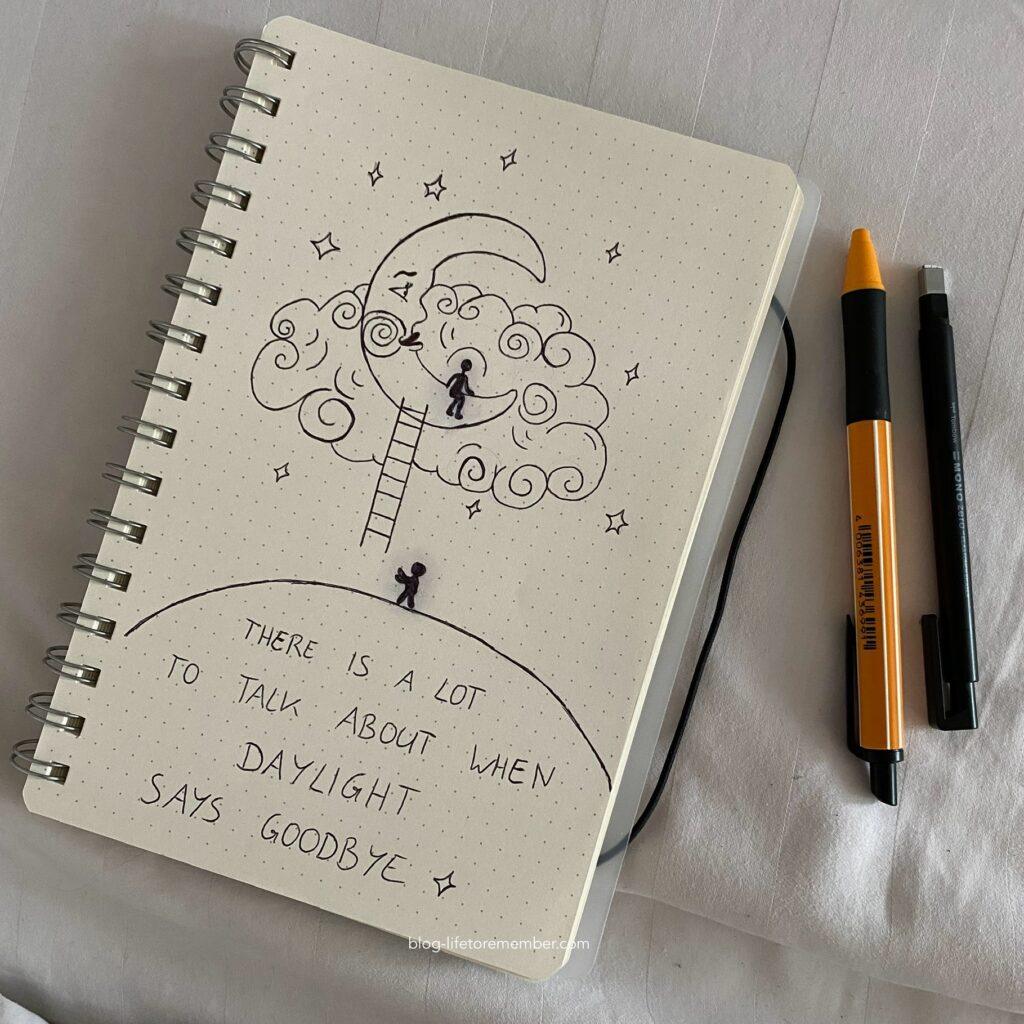 THERE IS A LOT
TO TALK ABOUT WHEN
DAYLIGHT
SAYS GOODBYE
Tombow
MONO zero
blog-lifetoremember.com